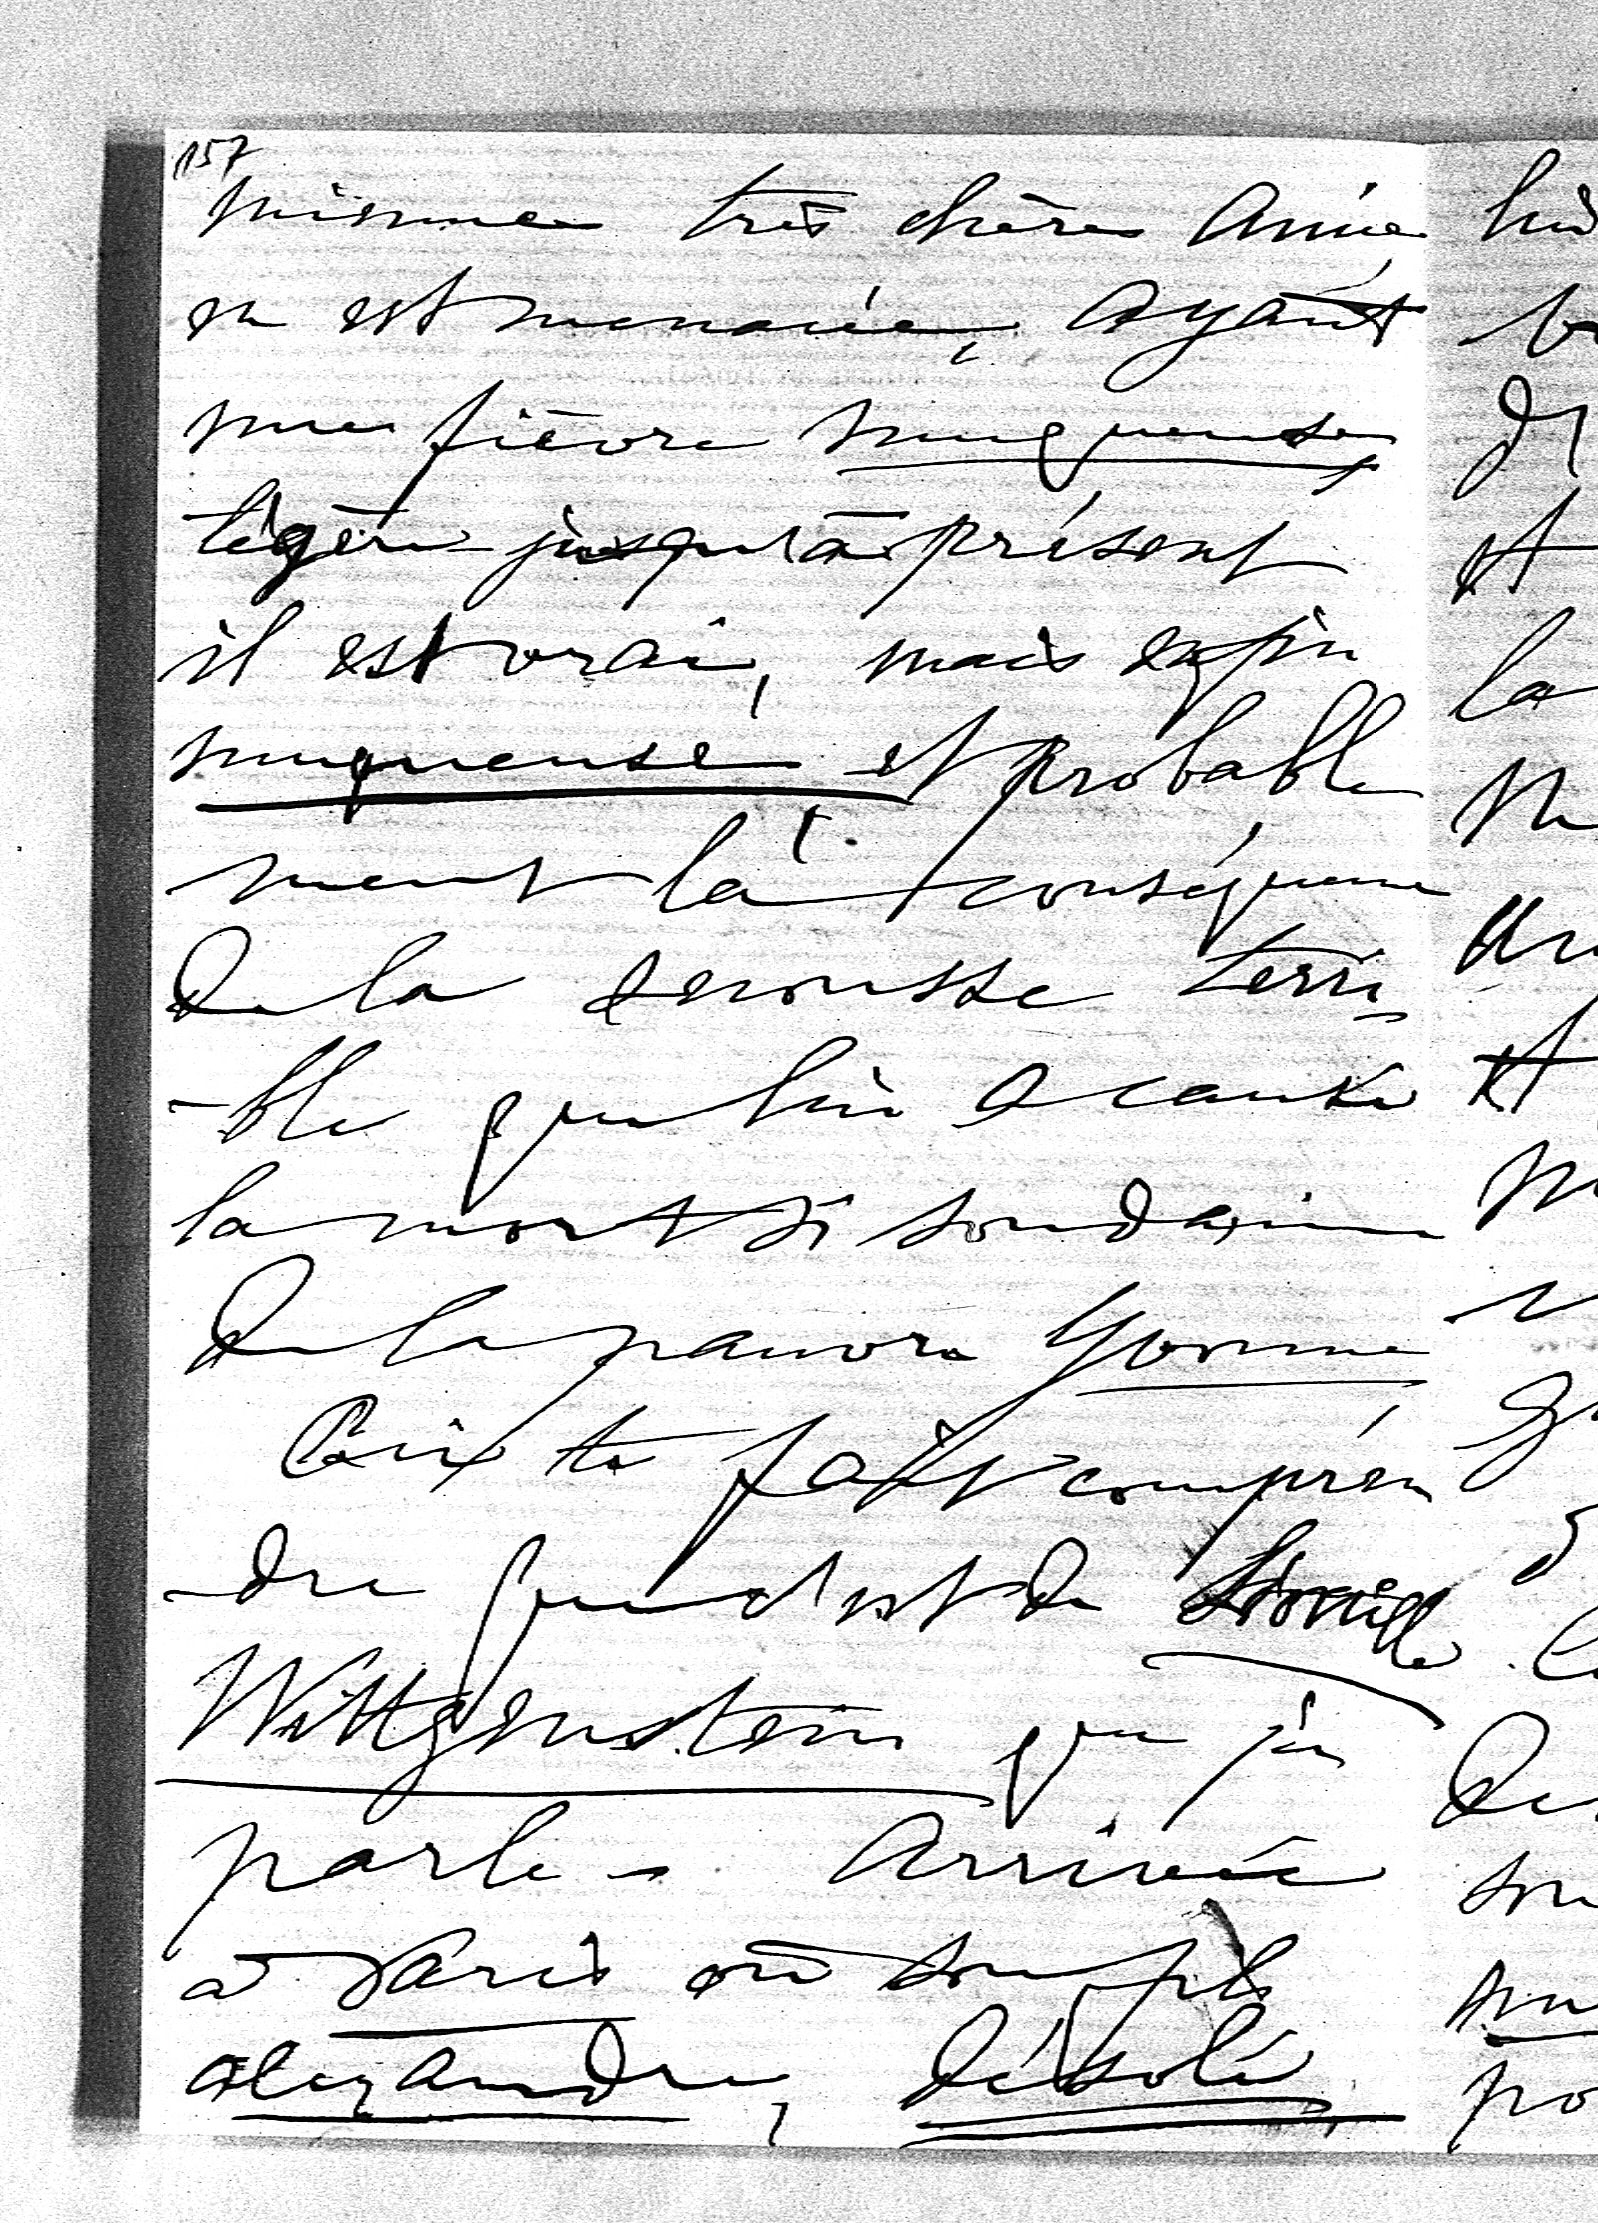 157
mienne très chère Amie
en est menacée, ayant
une fièvre muqueuse,
légère jusqu'à présent
il est vrai, mais enfin
muqueuse et probable
ment la conséquence
de la secousse terri
-ble que lui a causé
la mort si soudaine
de la pauvre Yvonne
Ceci te fait compren
-dre que c'est de
Wittgenstein que je
parle - Arrivée
à Paris où son fils
Alexandre, désolé,